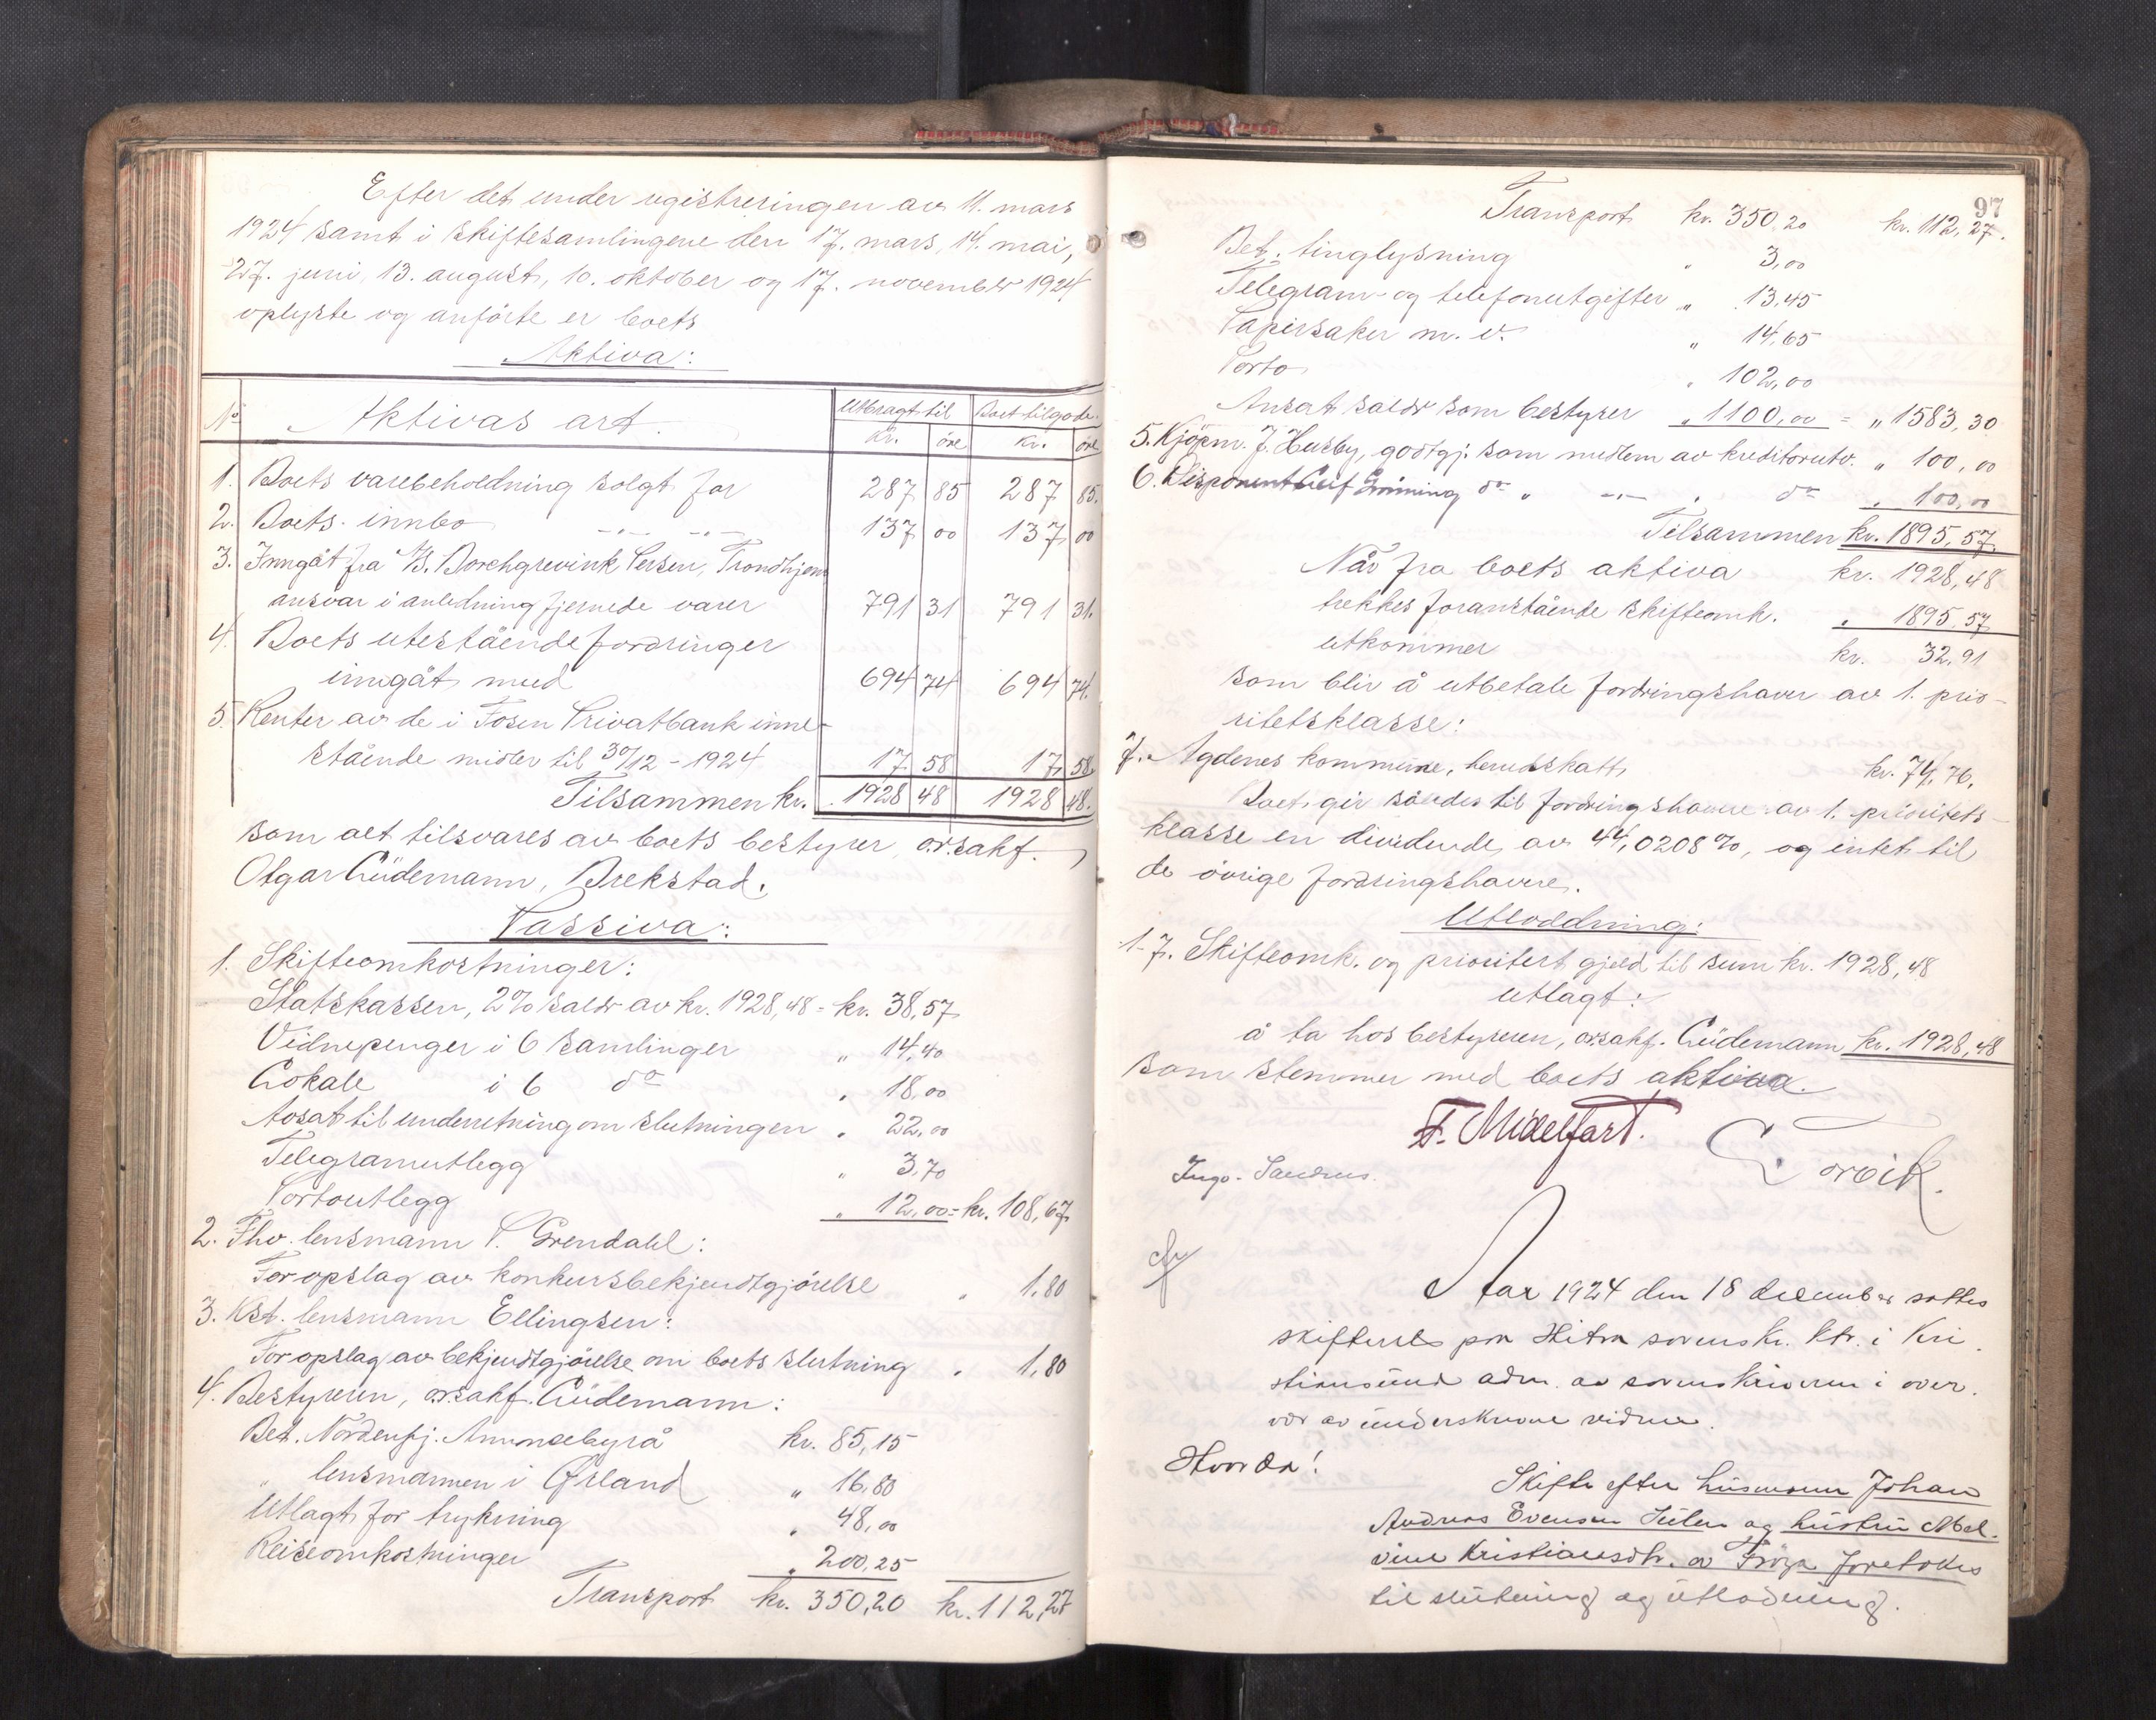 Efter det under registreringen av 11. mars
1924 samt i skiftesamlingene den 17. mars, 14. mai,
27. juni, 13. august, 10. oktober og 17. november 1924
oplyste og anförte er boets
Aktiva:
No Aktivas art. Utbragt til Boet tilgode.
kr. öre kr. öre
1. Boets varebeholdning solgt for 287 85 287 85.
2. Boets innbo -"- -"- 137 00 137 00
3. Inngåt fra A/S. Borchgrevink Persen, Trondhjem
ansvar i anledning fjernede varer 791 31 791 31.
4. Boets utestående fordringer
inngåt med 694 74 694 74.
5. Renter av de i Fosen Privatbank inne-
stående midler til 30/12 - 1924 17 58 17 58
Tilsammen kr. 1928 48 1928 48.
som alt tilsvares av boets bestyrer, o.r.sakf.
Otgar Lüdemann, Brekstad.
Passiva:
1. Skifteomkostninger:
Statskassen, 2% salær av kr. 1928,48 = kr. 38,57
Vidnepenger i 6 samlinger " 14,40
Lokale i 6 do " 18,00
Avsat til underretning om slutningen " 22,00
Telegramutlegg " 3,70
Portoutlegg " 12,00 = kr. 108,67
2. Fhv. lensmann P. Grendahl:
For opslag av konkursbekjendtgjörelse " 1,80
3. Kst. lensmann Ellingsen:
For opslag av bekjendtgjörelse om boets slutning " 1,80
4. Bestyreren, o.r.sakf. Lüdemann:
Bet. Nordenfj. Annoncebyrå kr. 85,15
" lensmannen i Ørland " 16,80
Utlagt for trykning " 48,00
Reiseomkostninger " 200,25
Transport kr. 350,20 kr. 112,27
97
Transport kr. 350,20 kr. 112,27.
Bet. tinglysning " 3,00
Telegram- og telefonutgifter " 13,45
Papirsaker m. v. " 14,65
Porto " 102,00
Ansat salær som bestyrer " 1100,00 = " 1583,30
5. Kjöpm. J. Husby, godtgj. som medlem av kreditorutv. " 100,00
6. Disponent Leif Grönning do " -"- " do " 100,00
Tilsammen kr. 1895,57
Når fra boets aktiva kr. 1928,48
trekkes foranstående skifteomk. " 1895,57
utkommer kr. 32,91
som blir å utbetale fordringshaver av 1. prio-
ritetsklasse:
7. Agdenes kommune, herredskatt kr. 74,76.
Boet gir således til fordringshavere av 1. prioritets-
klasse en dividende av 44,0208%, og intet til
de övrige fordringshavere.
Utlodning:
1-7. Skifteomk. og prioritert gjeld til sum kr. 1928,48
utlagt:
å ta hos bestyreren, o.r.sakf. Lüdemann kr. 1928,48
som stemmer med boets aktiva.
F. Midelfart.
Aar 1924 den 18 december sattes
skifteret paa Hitra sorenskr. ktr. i Kri
stiansund adm. av sorenskriveren i over.
vær av underskrevne vidner.
Hvorda!
Skifte efter husmann Johan
Andreas Evensen og hustru Mel.
vine Kristiansdtr. av Fröya foretokes
til slutning og utlodning.